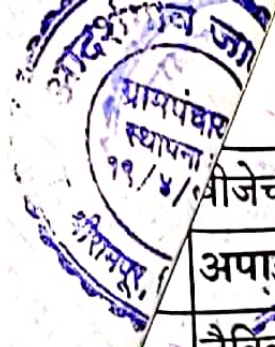 आदर्श गाव जा
ग्रामपंचाय
स्थापना :
१९/४/
श्रीरामपूर,
बीजेच
अपा